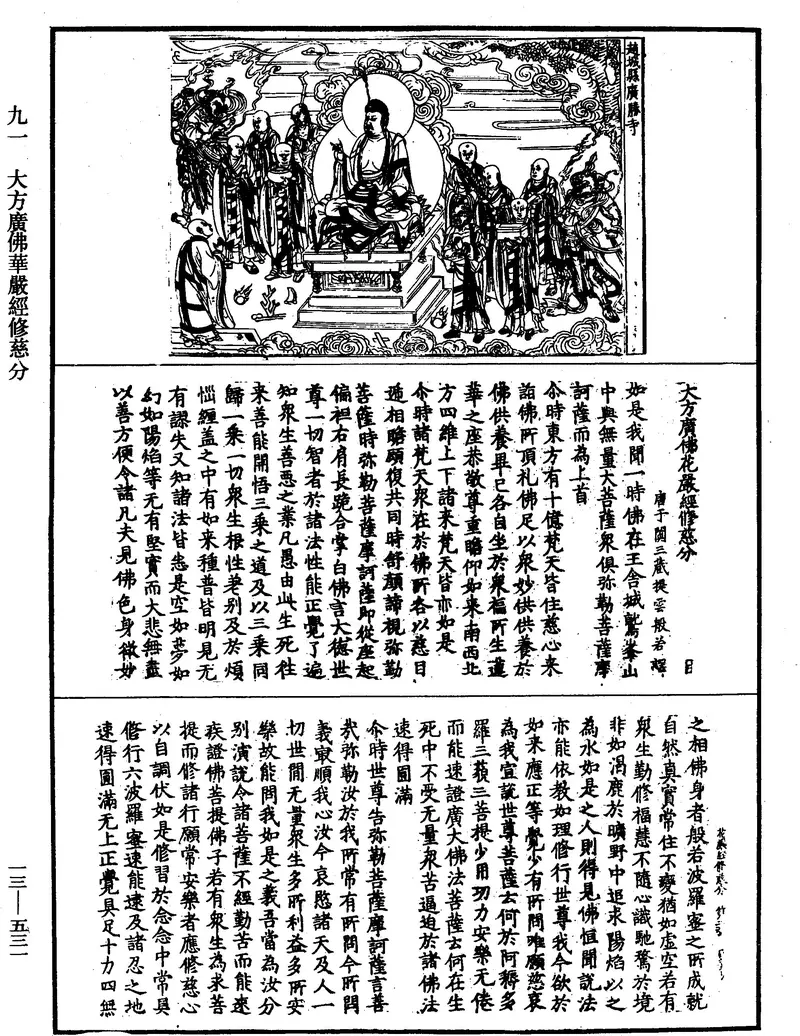 趙城縣廣勝寺
大方廣佛花嚴經修慈分
唐于闐三藏提雲般若譯
如是我聞一時佛在王舍城鷲峯山
中與無量大菩薩衆俱弥勒菩薩摩
訶薩而為上首
尒時東方有十億梵天皆住慈心来
詣佛所頂礼佛足以衆妙供供養於
佛供養畢已各自坐於衆福所生蓮
華之座恭敬尊重瞻仰如来南西北
方四維上下諸来梵天皆亦如是
尒時諸梵天衆在於佛所各以慈目
遞相瞻顧復共同時舒顏諦視弥勒
菩薩時弥勒菩薩摩訶薩即從座起
偏袒右肩長跪合掌白佛言大德世
尊一切智者於諸法性能正覺了遍
知衆生善惡之業凡愚由此生死往
来善能開悟三乘之道及以三乘同
歸一乘一切衆生根性差别及於煩
惱纏盖之中有如来種普皆明見无
有謬失又知諸法皆悉是空如夢如
幻如陽焰等无有堅實而大悲無盡
以善方便令諸凡夫見佛色身微妙
之相佛身者般若波羅蜜之所成就
自然真實常住不變猶如虚空若有
衆生勤修福慧不隨心識馳騖於境
非如渴鹿於曠野中追求陽焰以之
為水如是之人則得見佛恒聞說法
亦能依教如理修行世尊我今欲於
如来應正等覺少有所問唯願慈哀
為我宣說世尊菩薩云何於阿耨多
羅三藐三菩提少用功力安樂无倦
而能速證廣大佛法菩薩云何在生
死中不受无量衆苦逼迫於諸佛法
速得圓滿
尒時世尊告弥勒菩薩摩訶薩言善
哉弥勒汝於我所常有所問今所問
義寂順我心汝今哀愍諸天及人一
切世間无量衆生多所利益多所安
樂故能問我如是之義吾當為汝分
别演說令諸菩薩不經勤苦而能速
疾證佛菩提佛子若有衆生為求菩
提而修諸行願常安樂者應修慈心
以自調伏如是修習於念念中常具
修行六波羅蜜速能速及諸忍之地
速得圓滿无上正覺具足十力四無
九一　大方廣佛華嚴經修慈分
一三—五三一